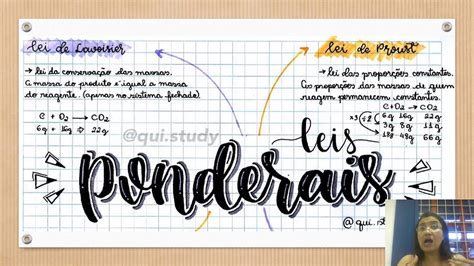 lei de Lavoisier
→ lei da conservação das massas.
A massa do produto é igual a massa
do reagente. (apenas no sistema fechado).
C + O2 → CO2
6g + 16g → 22g
@qui.study
lei de Proust
→ lei das proporções constantes.
As proporções das massas de quem
reagem permanecem constantes.
C + O2 → CO2
6g 16g 22g
3g 8g 11g
18g 48g 66g
leis
ponderais